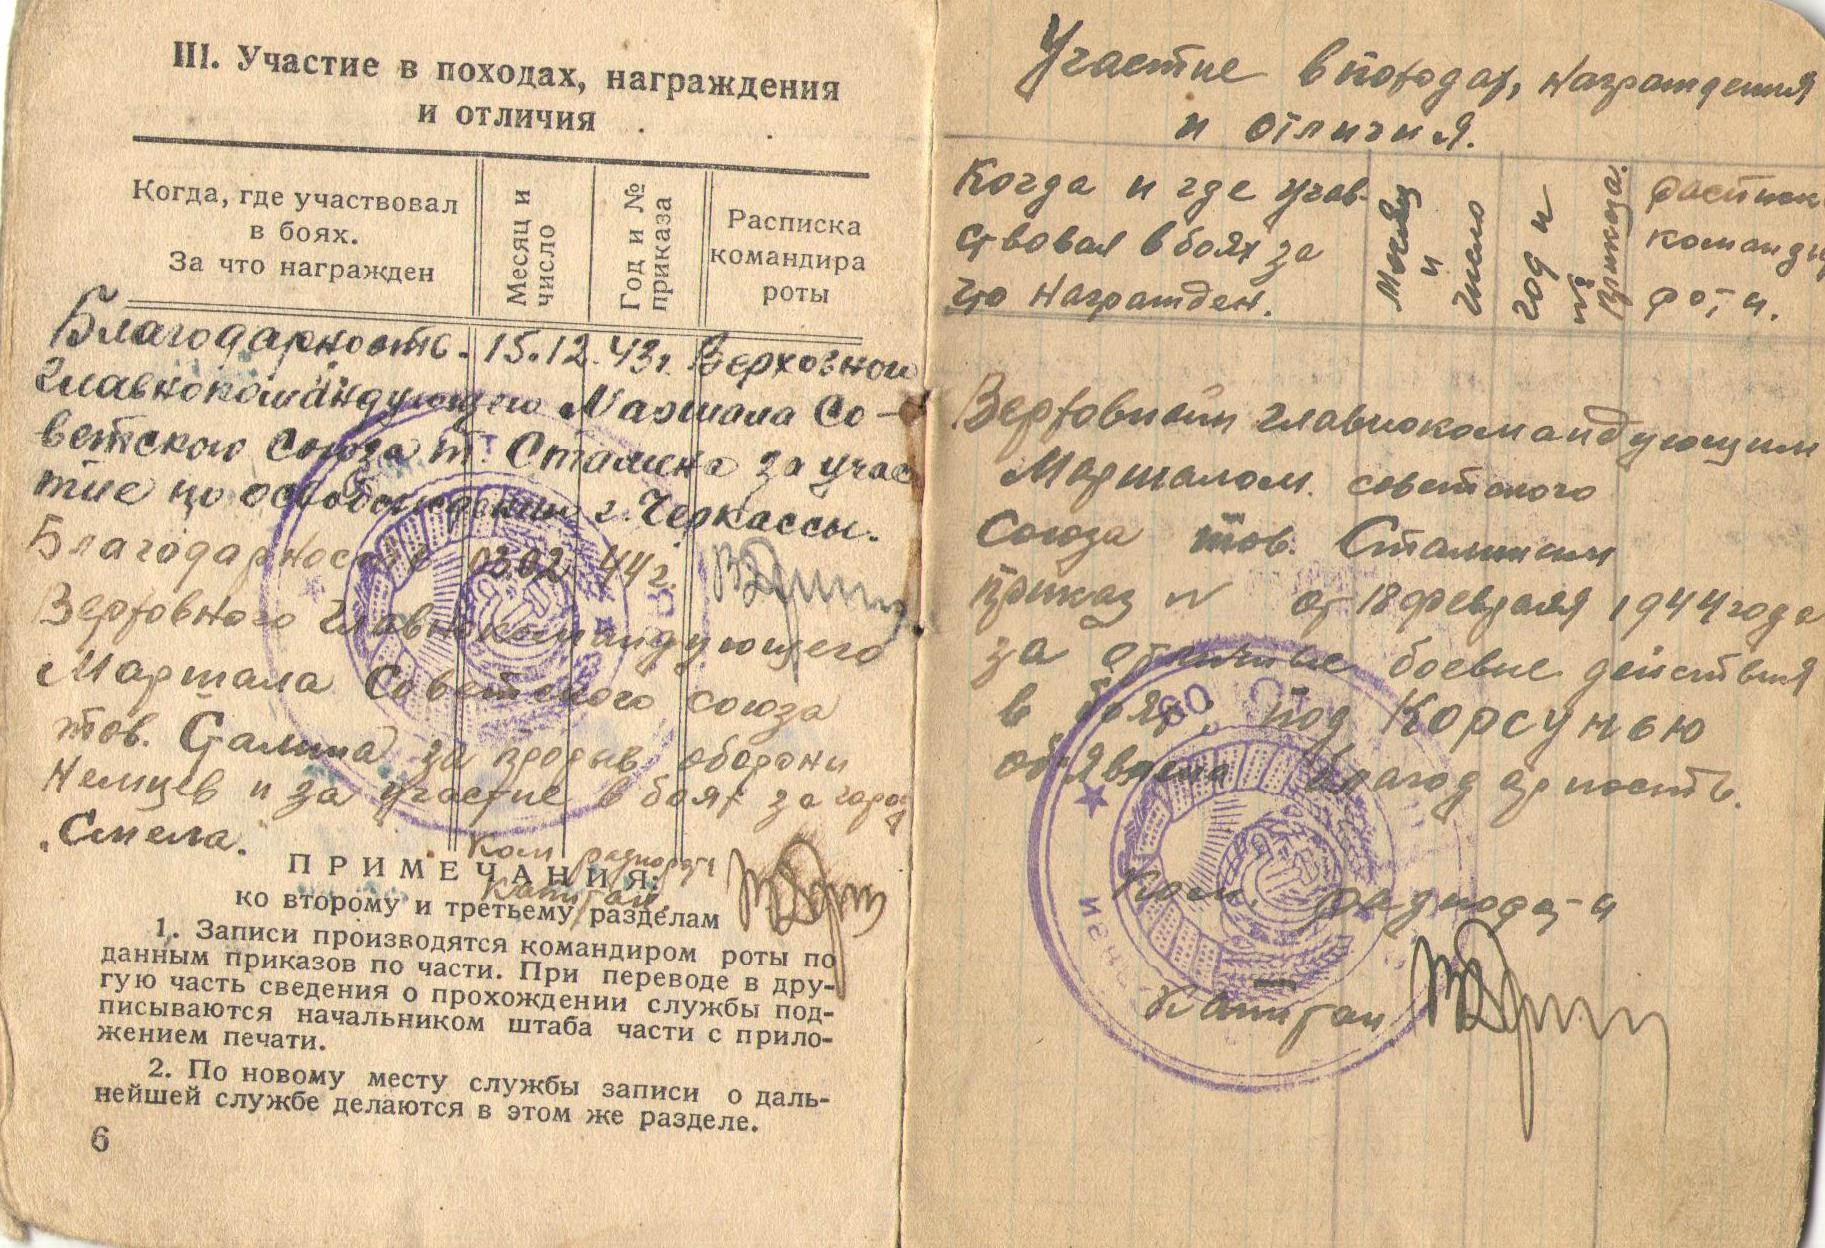 III. Участие в походах, награждения
и отличия
Когда, где участвовал
в боях.
За что награжден
Месяц и
число
Год и №
приказа
Расписка
командира
роты
Благодарность. 15.12.43г. Верховного
Главнокомандующего Маршала Со-
ветского Союза т. Сталина за учас
тие по освобождению г. Черкассы.
Благодарность 03.02 44г.
Верховного Главнокомандующего
Маршала Советского союза
тов. Сталина за прорыв оборони
Немцев и за участие в боях за город
Смела.
Ком радиороти
Капитан
ПРИМЕЧАНИЯ:
ко второму и третьему разделам
1. Записи производятся командиром роты по
данным приказов по части. При переводе в дру-
гую часть сведения о прохождении службы под-
писываются начальником штаба части с прило-
жением печати.
2. По новому месту службы записи о даль-
нейшей службе делаются в этом же разделе.
6
Участие в походах, награждения
и отличия.
Когда и где учав-
ствовал в боях за
что награжден.
Месяц
и
число
год и
№
приказа.
распис
команди
роти.
Верховным главнокомандующим
Маршалом советского
Союза тов. Сталиным
приказ № от 18 февраля 1944 года
за отличные боевые действия
в боях под Корсунью
объявлена благодарность.
Ком. радиороти
Капитан